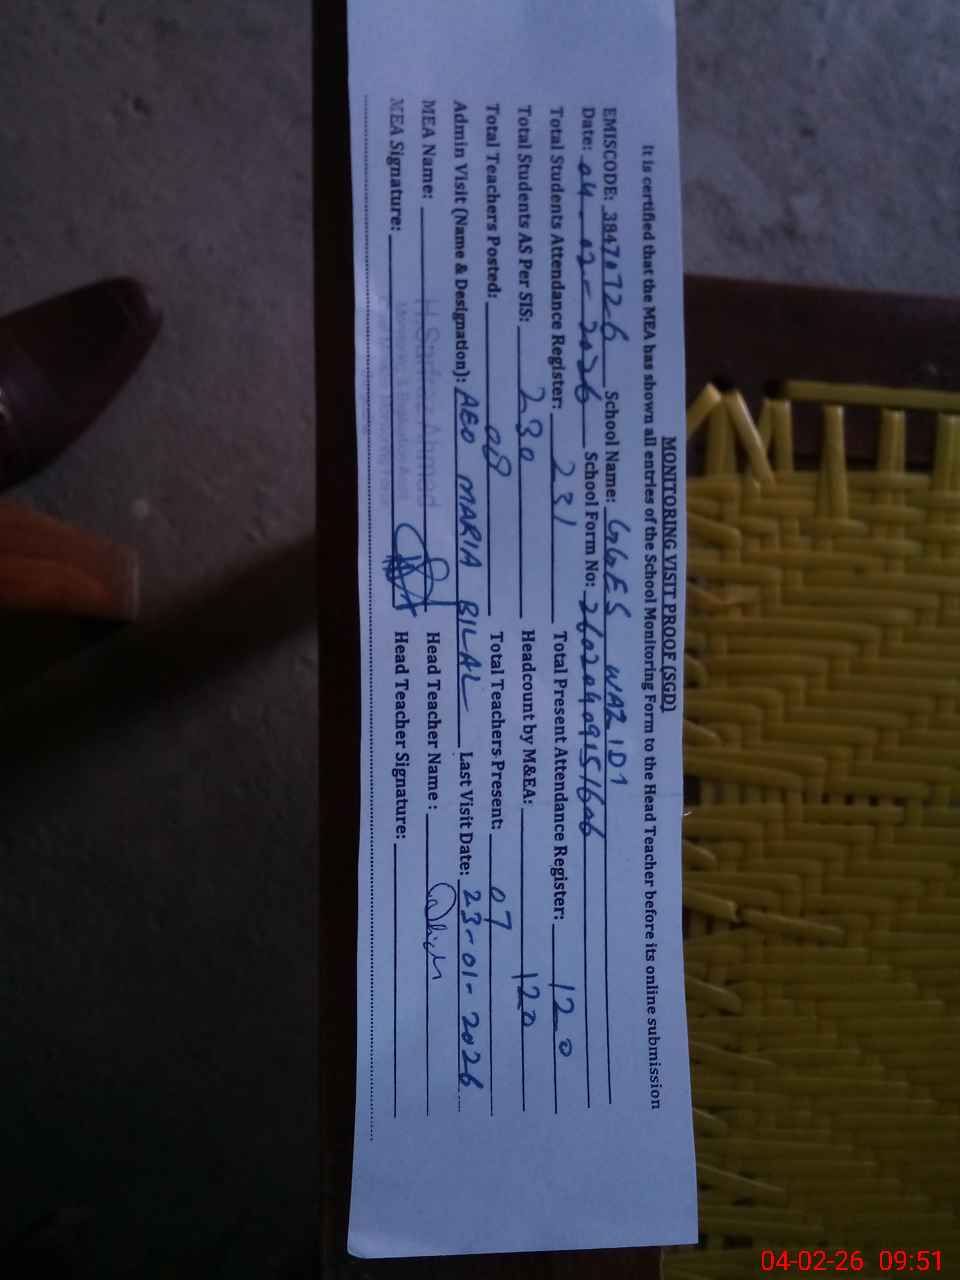 MONITORING VISIT PROOF (SGD)
It is certified that the MEA has shown all entries of the School Monitoring Form to the Head Teacher before its online submission
EMISCODE: 38470726 School Name: GGES WAZIDI
Date: 04-02-2026 School Form No: 26020409151606
Total Students Attendance Register: 231 Total Present Attendance Register: 120
Total Students AS Per SIS: 230 Headcount by M&EA: 120
Total Teachers Posted: 08 Total Teachers Present: 07
Admin Visit (Name & Designation): AEO MARIA BILAL Last Visit Date: 23-01-2026
MEA Name: Ahmad Head Teacher Name :
MEA Signature: Head Teacher Signature:
04-02-26 09:51